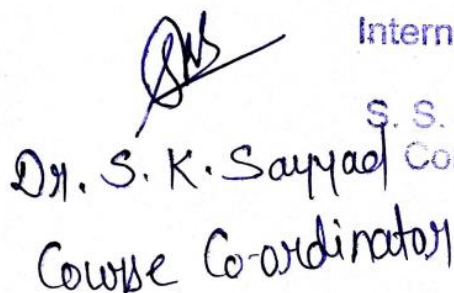 Intern
S. S.
Dr. S. K. Sayyad Co
Course Co-ordinator